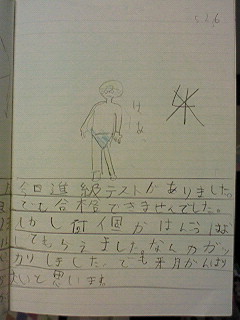 5.26
はあ
今日進級テストがありました。
でも合格できませんでした。
しかし何個か はんつ はな
してもらえました。なんのがッ
かりしました。でも来月がんばり
たいと思います